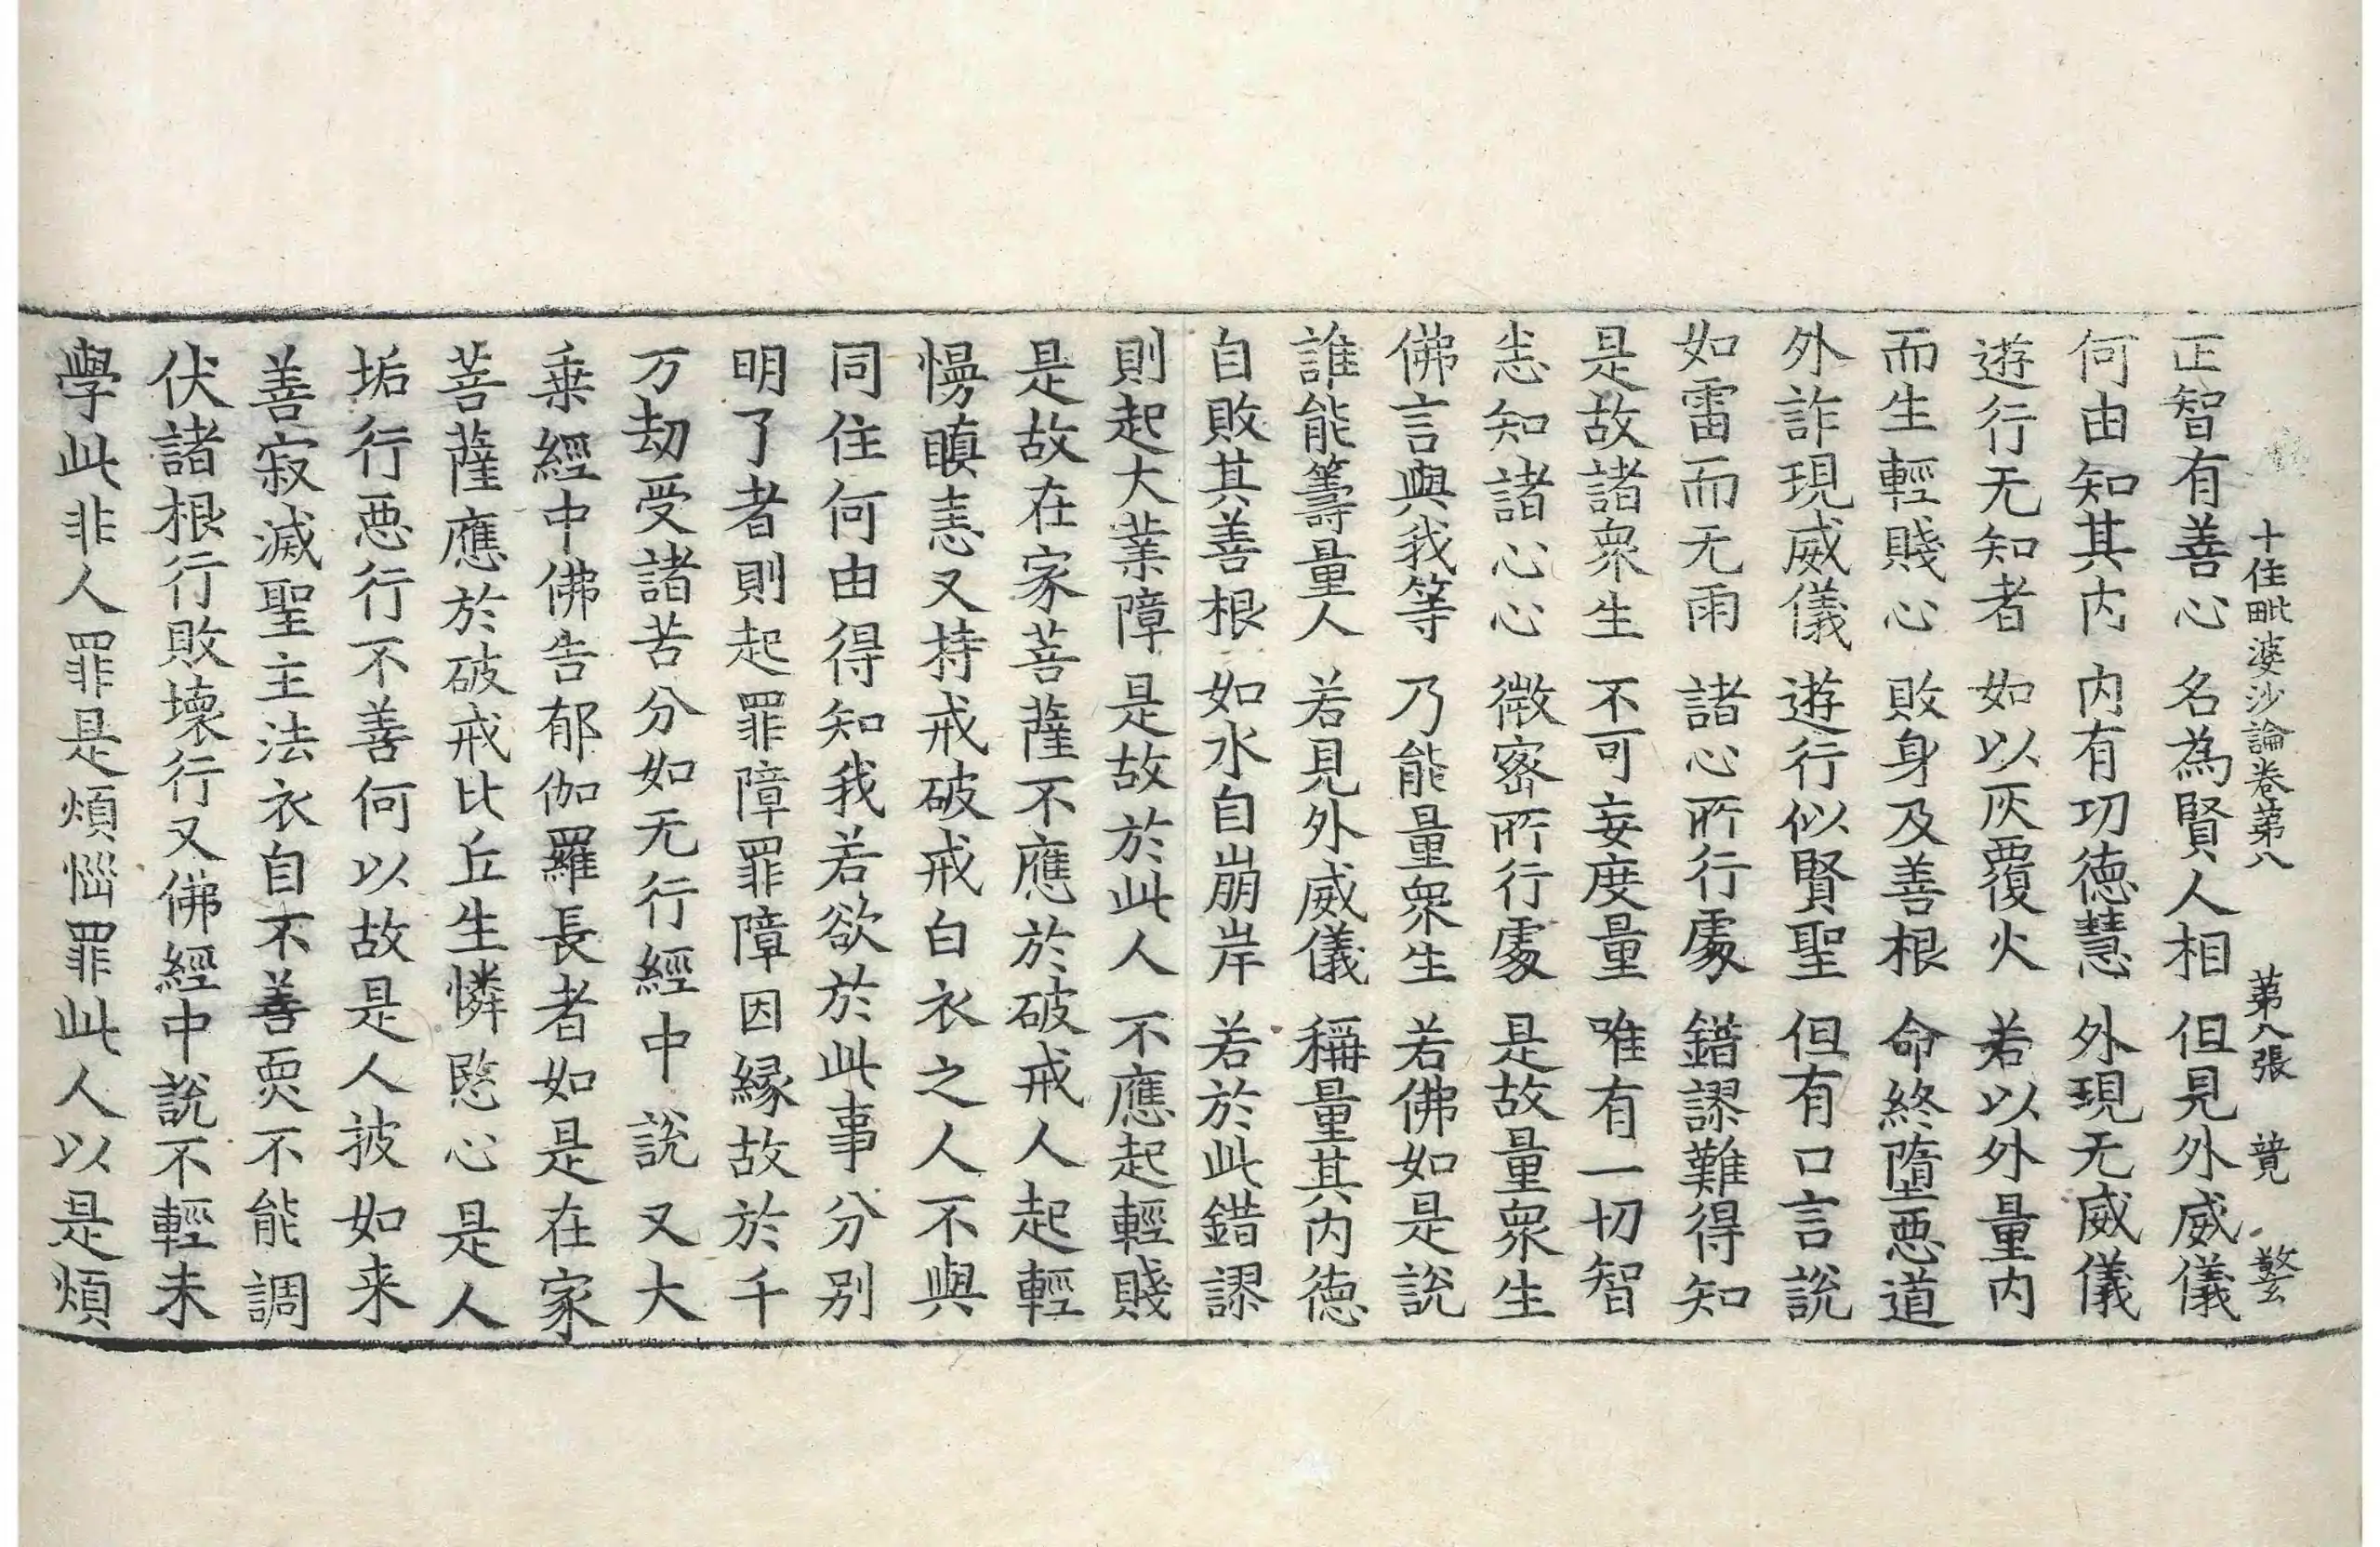 十住毗婆沙論卷第八 第八張 竟 䜘
正智有善心 名為賢人相 但見外威儀
何由知其内 内有㓛德慧 外現无威儀
遊行无知者 如以灰覆火 若以外量内
而生輕賤心 敗身及善根 命終墮惡道
外詐現威儀 遊行似賢聖 但有口言說
如雷而无雨 諸心所行處 錯謬難得知
是故諸衆生 不可妄度量 唯有一切智
悉知諸心心 微密所行處 是故量衆生
佛言與我等 乃能量衆生 若佛如是說
誰能籌量人 若見外威儀 稱量其内德
自敗其善根 如水自崩岸 若於此錯謬
則起大業障 是故於此人 不應起輕賤
是故在家菩薩不應於破戒人起輕
慢瞋恚又持戒破戒白衣之人不與
同住何由得知我若欲於此事分別
明了者則起罪障罪障因緣故於千
万劫受諸苦分如无行經中說又大
乗經中佛告郁伽羅長者如是在家
菩薩應於破戒比丘生憐愍心是人
垢行惡行不善何以故是人披如来
善寂滅聖主法衣自不善耎不能調
伏諸根行敗壞行又佛經中說不輕未
學此非人罪是煩惱罪此人以是煩